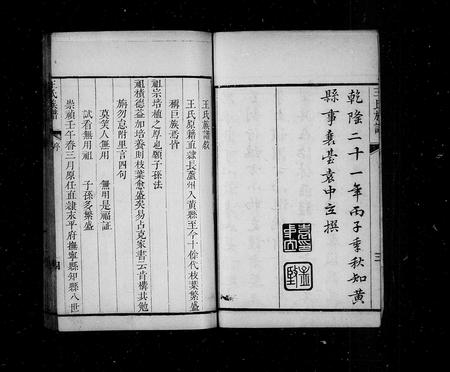 乾隆二十一年丙子季秋知黃
縣事襄臺袁中立撰
王氏族譜
王氏族譜敘
王氏原籍直隸長蘆州入黃縣至今十餘代枝葉繁盛
稱巨族焉皆
祖宗培植之厚也願子孫法
祖積德益加培養則枝葉愈盛矣易占克家書云肯構其勉
旃勿怠附里言四句
莫笑人無用 無用是福証
試看無用祖 子孫多繁盛
崇禎壬午春三月原任直隸永平府撫寧縣知縣八世
王氏族譜
序